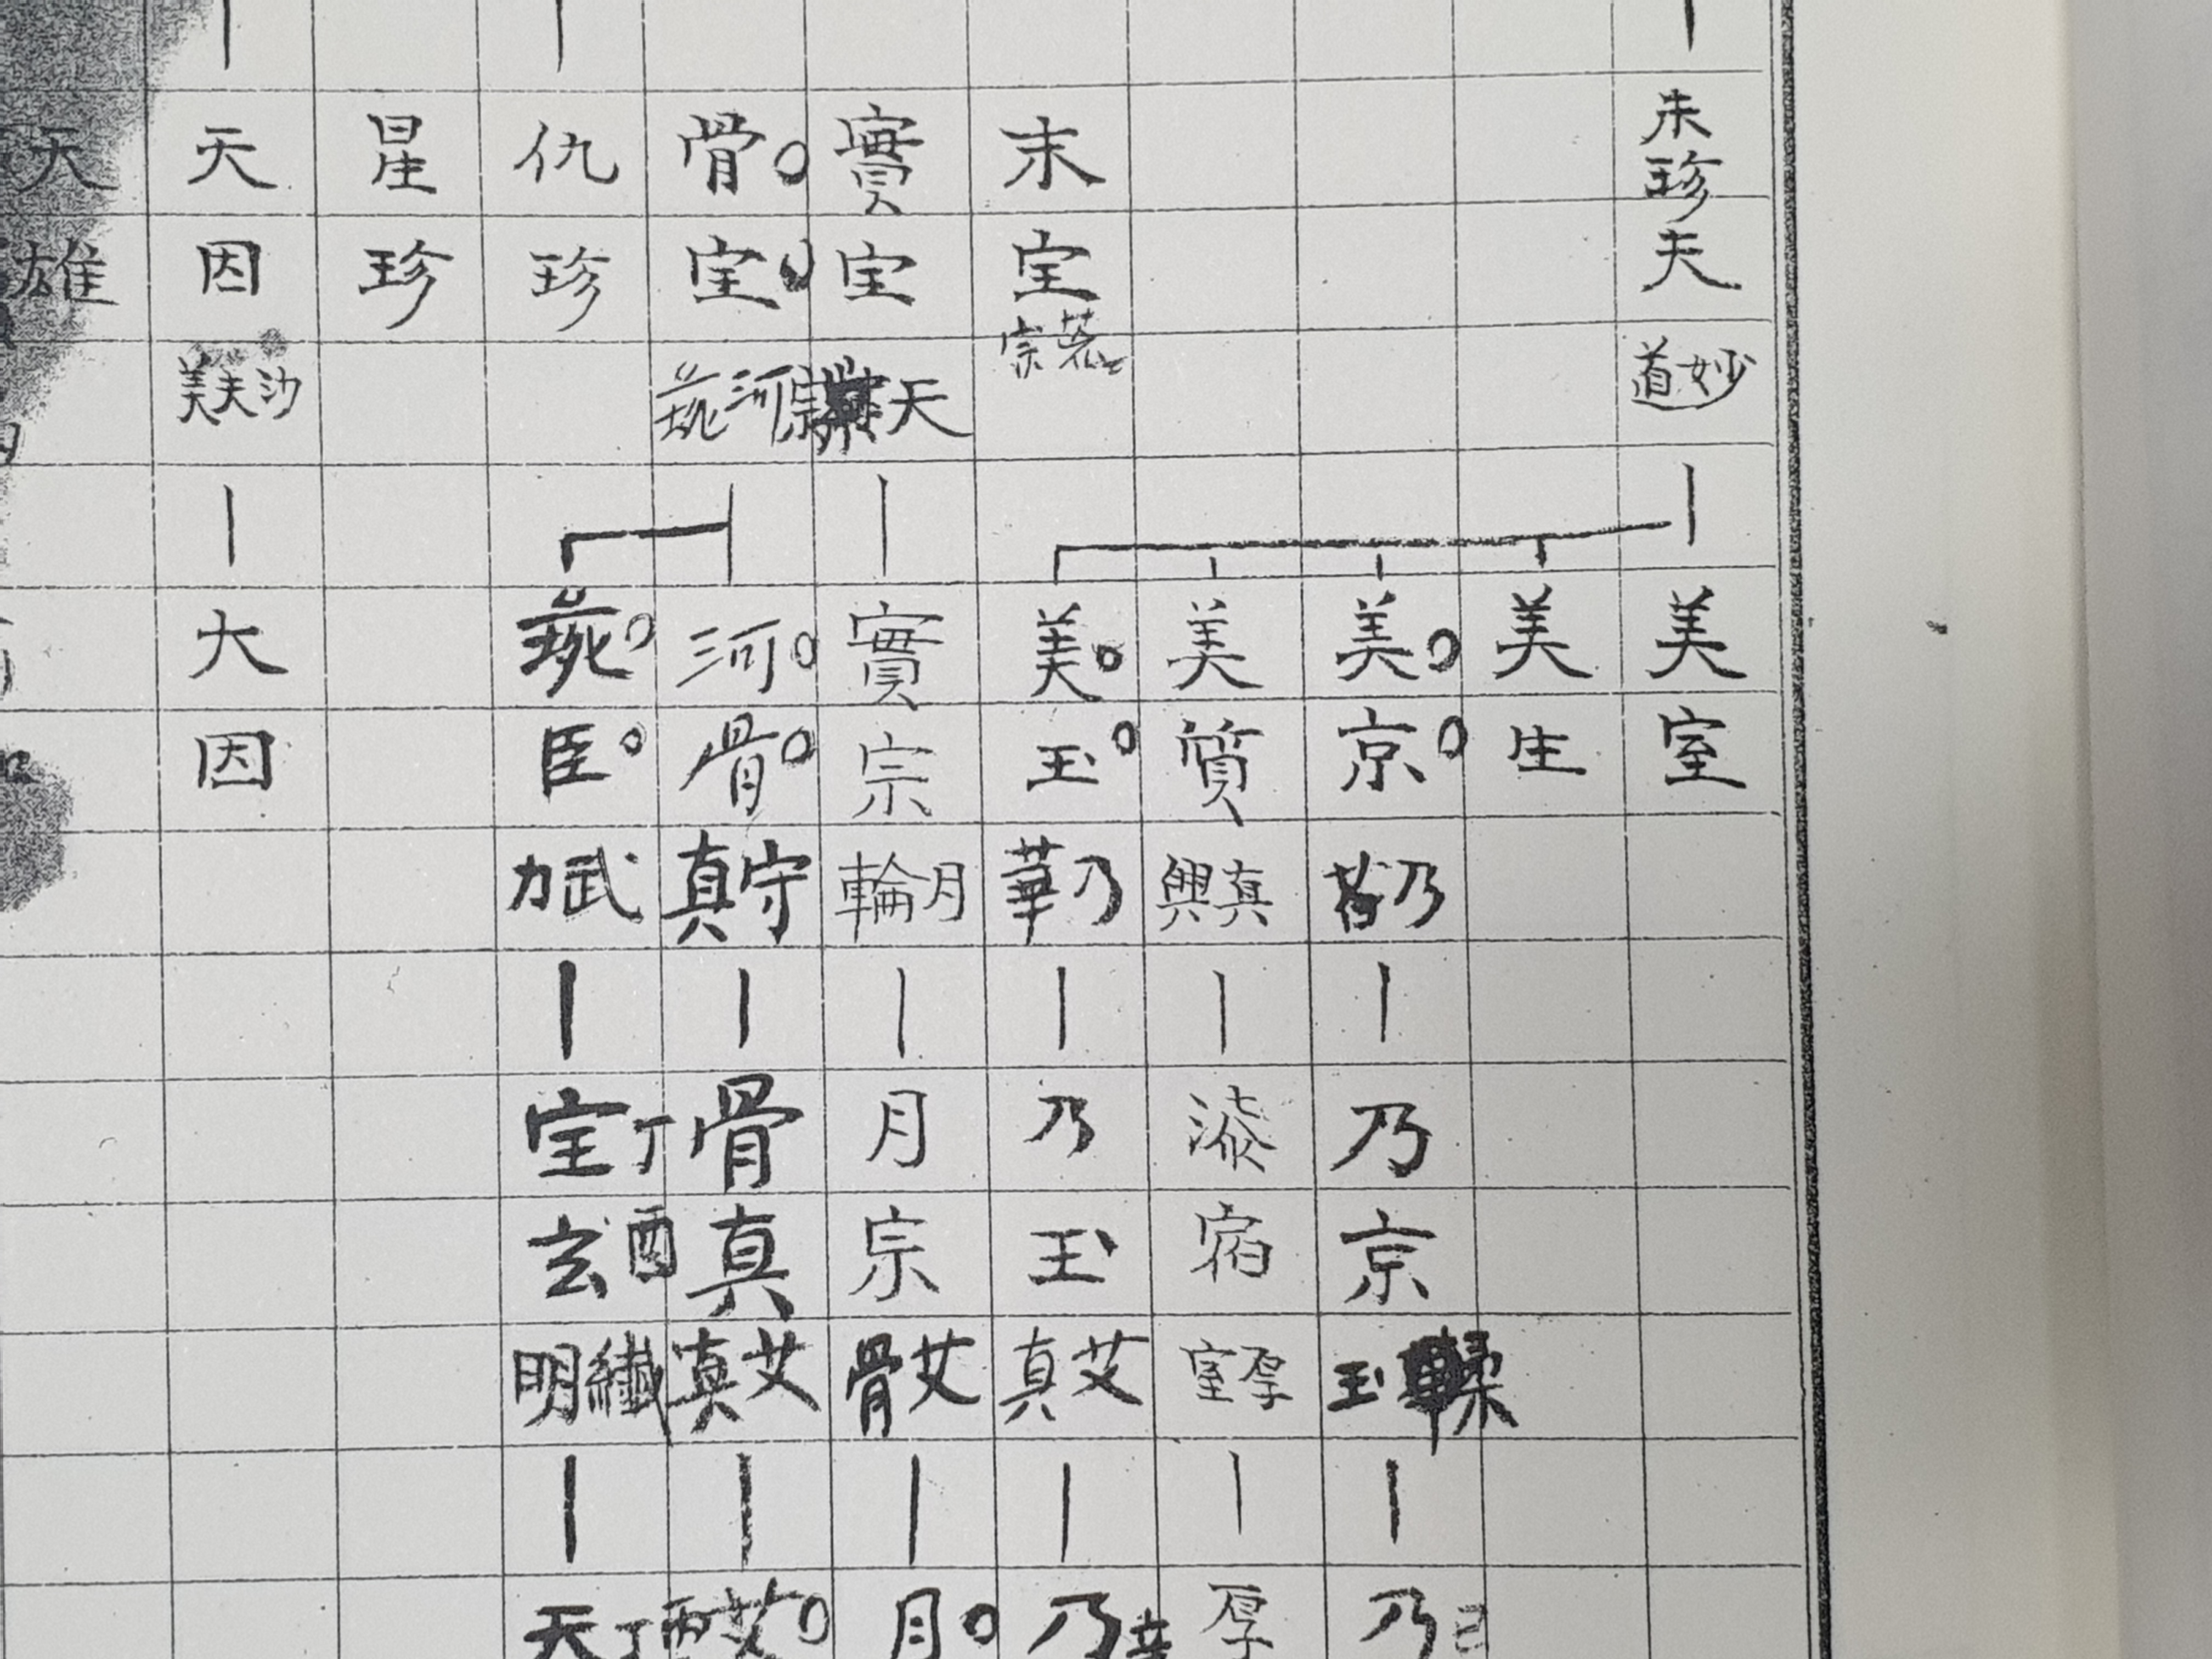 未珍夫
妙道
美室
美生
美京
乃
乃京
玉
乃己
美質
真興
宿
厚室
厚
末宝
宗
美玉
乃華
乃玉
艾真
乃
實宝
天
實宗
月輪
月宗
艾骨
月
骨宝
河
河骨
守真
骨真
艾真
艾
臣
武力
宝玄
丁酉
纖明
天
丁酉
仇珍
星珍
天因
沙夫美
大因
天雄